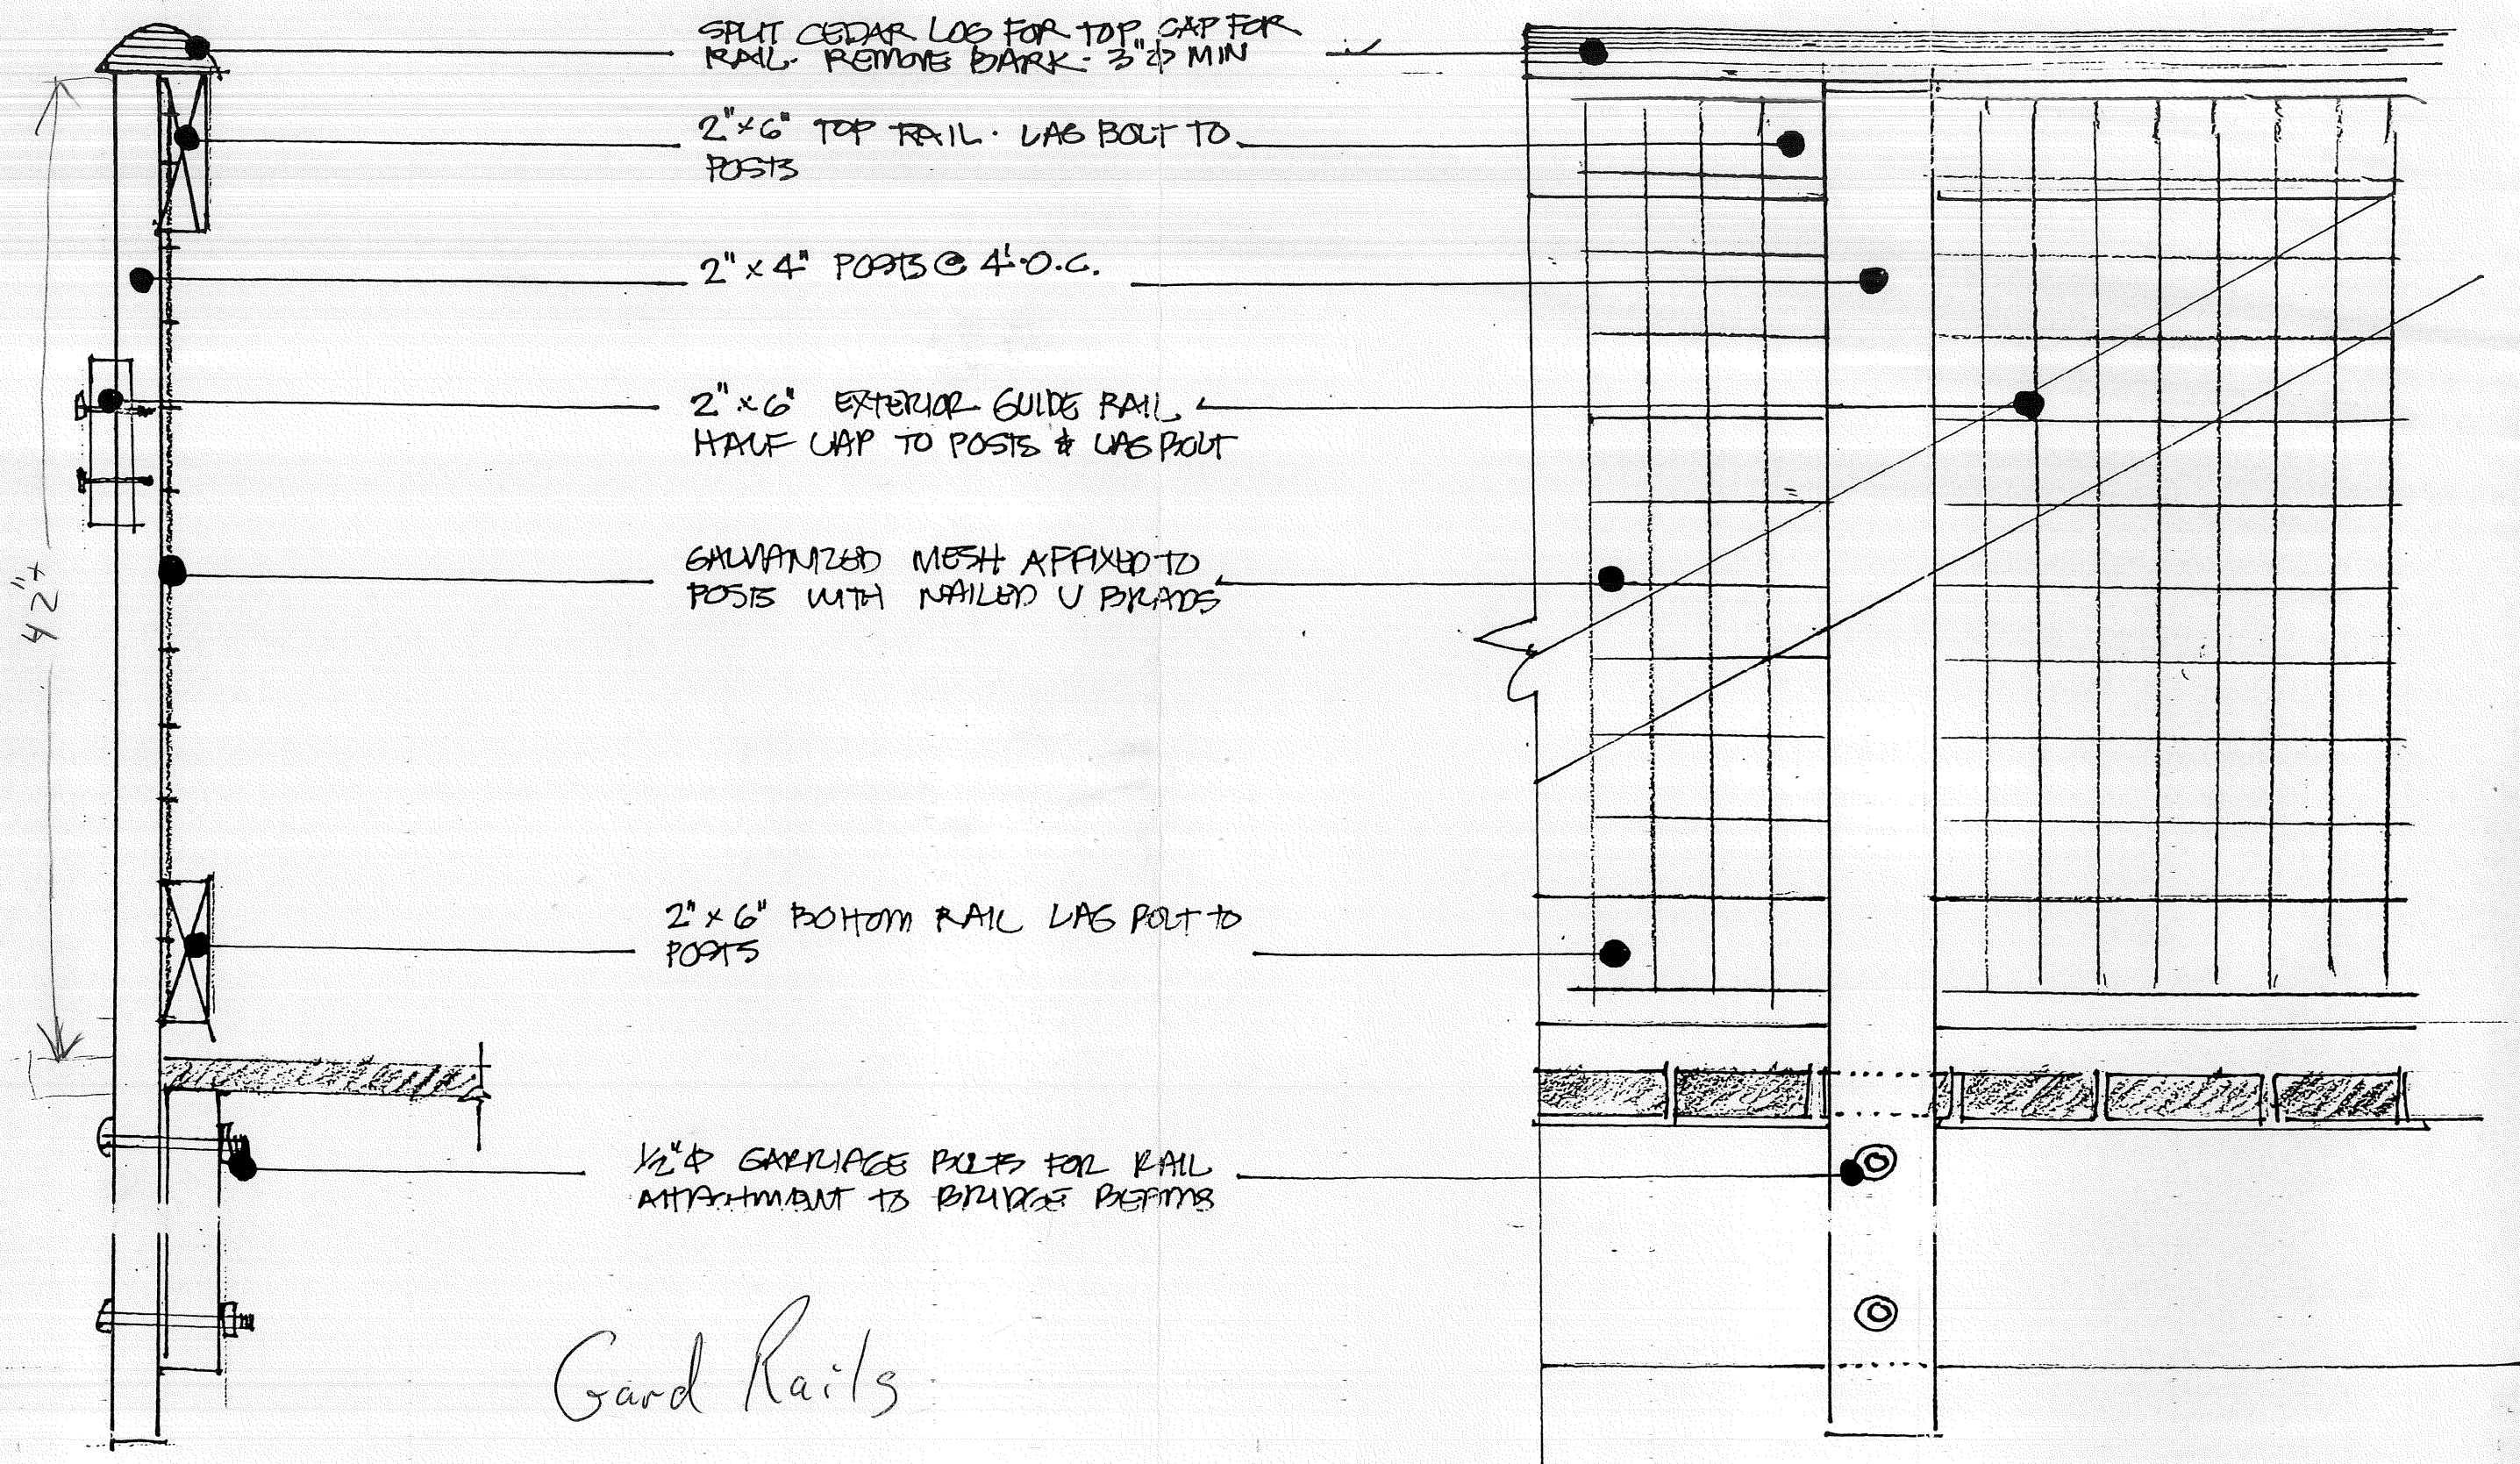 SPLIT CEDAR LOG FOR TOP CAP FOR
RAIL. REMOVE BARK. 3"φ MIN
2"x6" TOP RAIL. LAG BOLT TO
POSTS
2"x4" POSTS @ 4'-O.C.
2"x6" EXTERIOR GUIDE RAIL
HALF LAP TO POSTS & LAG BOLT
42"±
GALVANIZED MESH AFFIXED TO
POSTS WITH NAILED U BRADS
2"x6" BOTTOM RAIL LAG BOLT TO
POSTS
1/2"φ CARRIAGE BOLTS FOR RAIL
ATTACHMENT TO BRIDGE BEAMS
Gard Rails